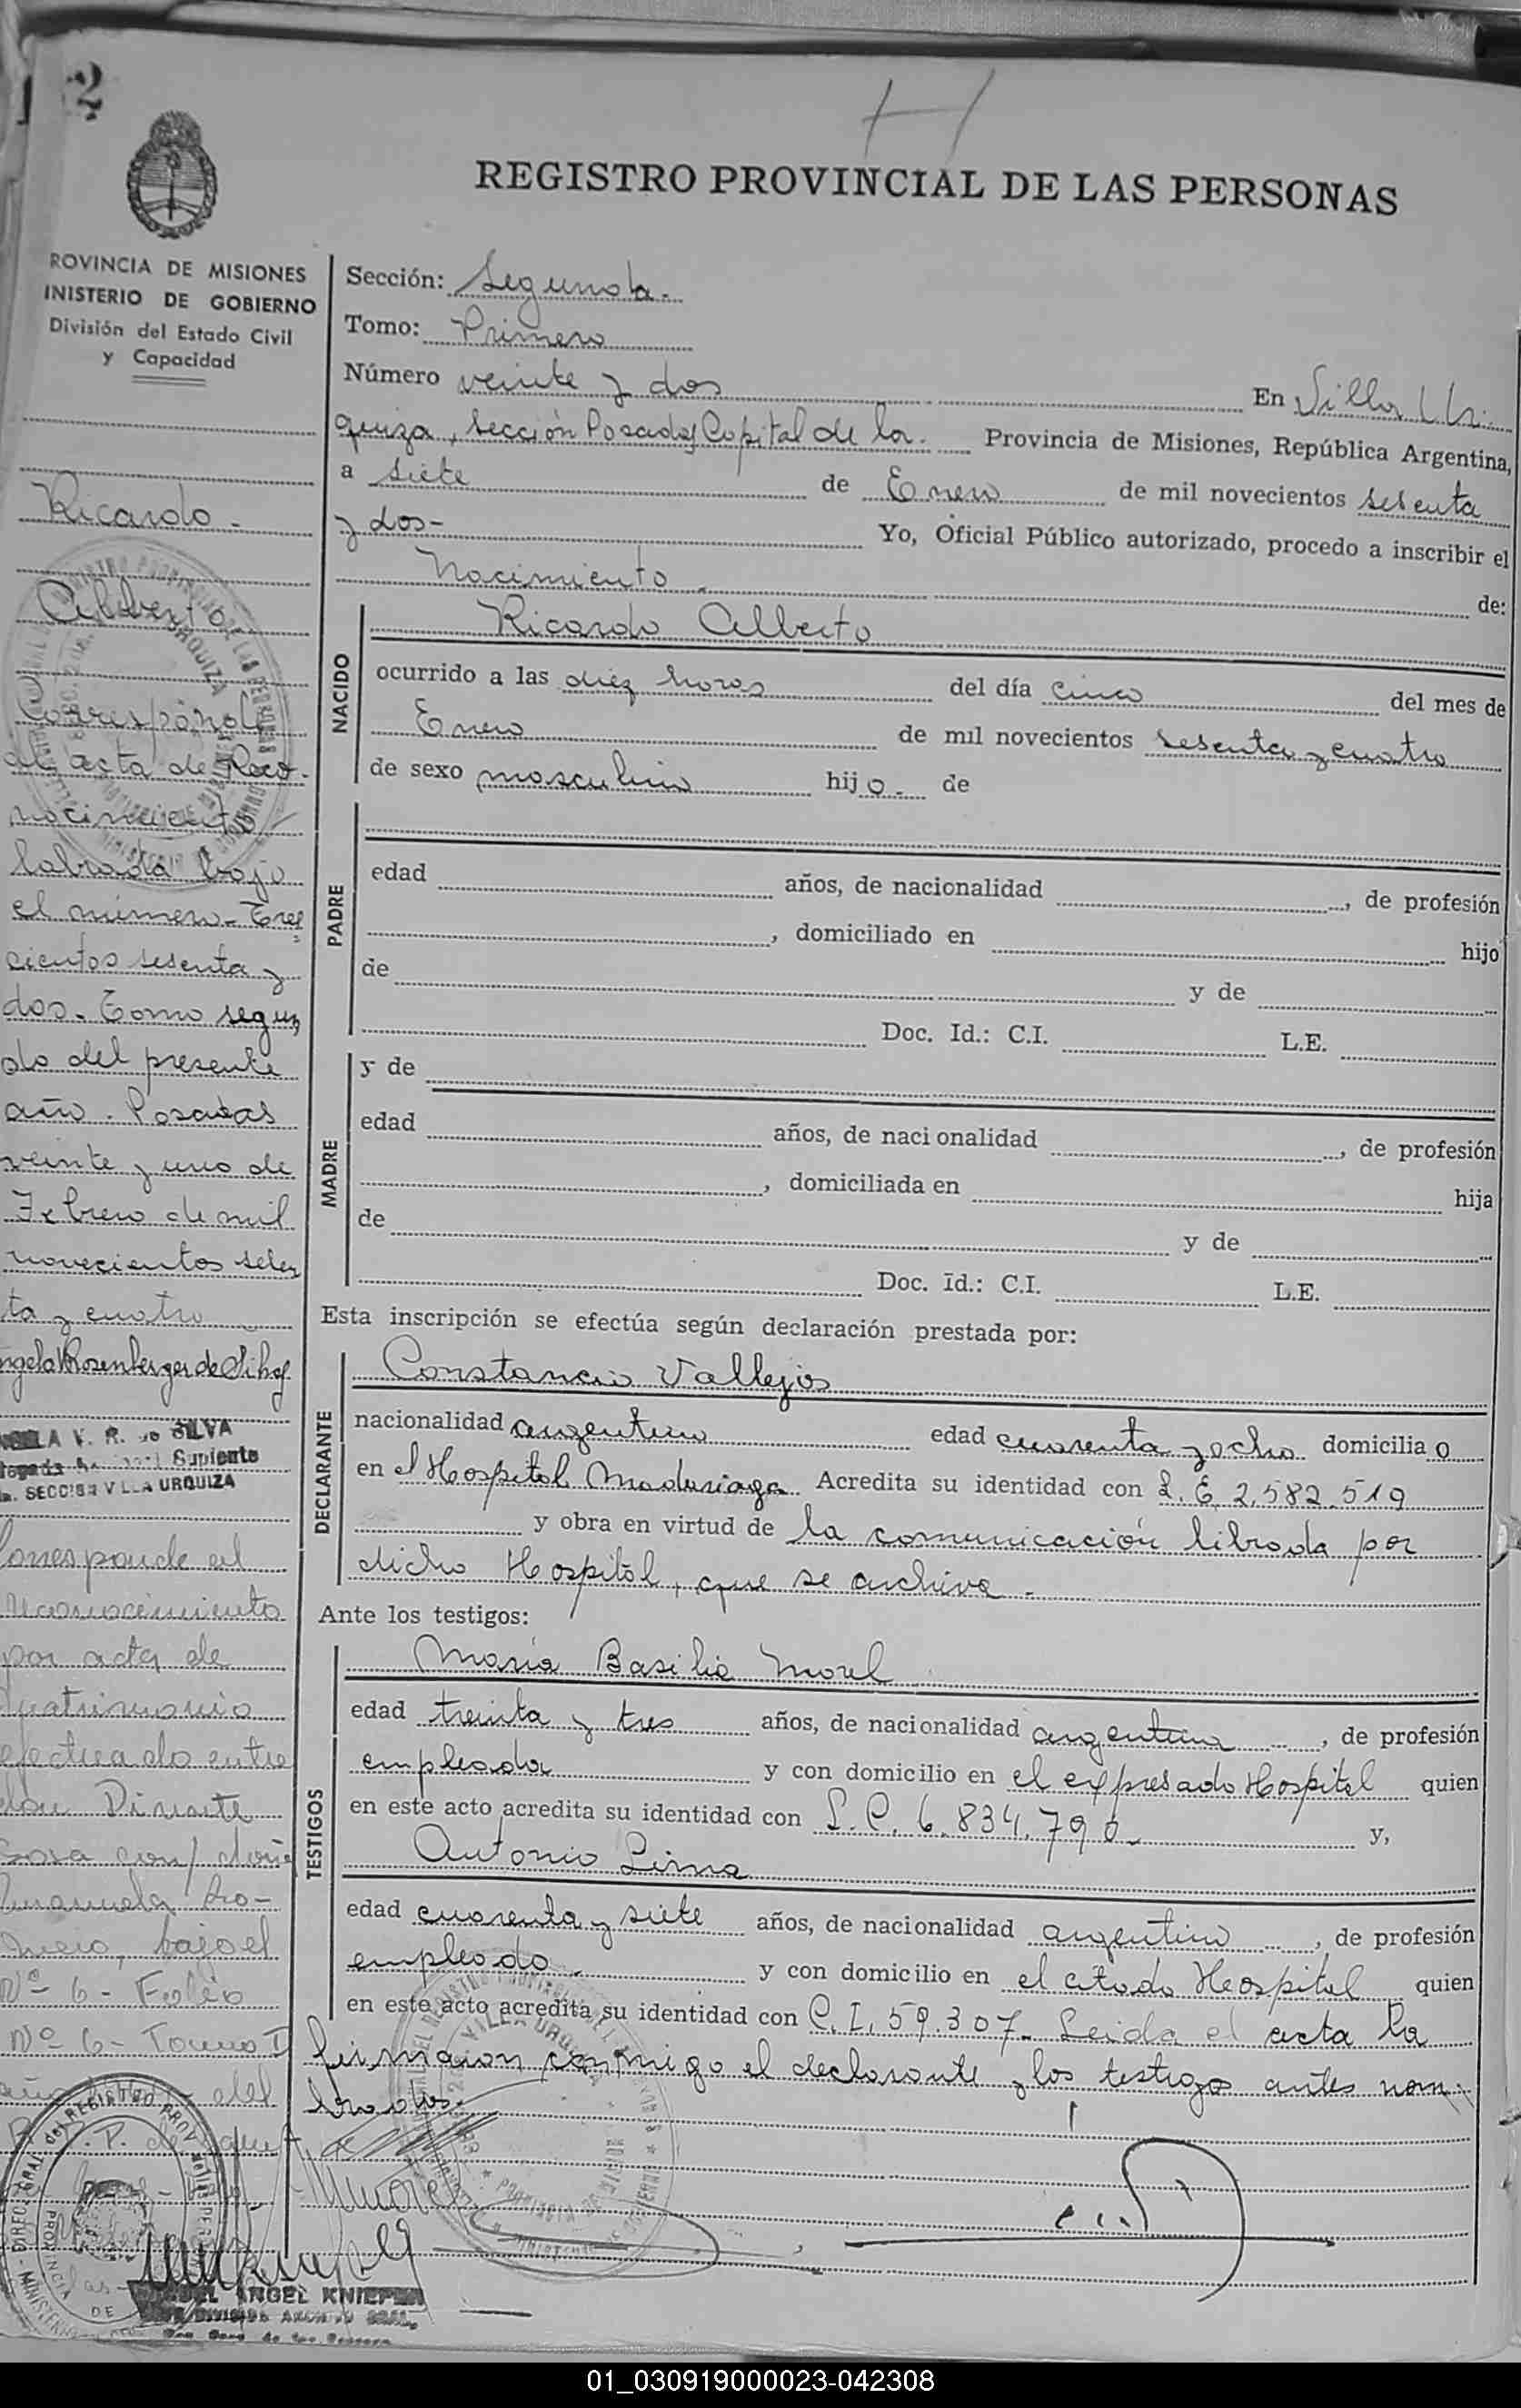 2
H
REGISTRO PROVINCIAL DE LAS PERSONAS
ROVINCIA DE MISIONES
INISTERIO DE GOBIERNO
División del Estado Civil
y Capacidad
Ricardo -
Alberto
Corresponde
al acta de Reco-
nocimiento
labrada bajo
el número - Tres
cientos sesenta y
dos - Tomo segun
do del presente
año. Posadas
veinte y uno de
Febrero de mil
novecientos sesen
ta y cuatro
ngela V Rosenberger de Silva
LA V. R. de SILVA
Suplente
SECCION VILLA URQUIZA
Corresponde al
Reconocimiento
por acta de
Matrimonio
efectuado entre
don Duarte
Sosa con/ doña
Manuela Ro-
mero, bajo el
Nº - 6 - Folio
Nº 6 - Tomo I
año del
Sección: Segunda.
Tomo: Primero
Número veinte y dos En Villa Ur.
quiza, Sección Posadas Capital de la. Provincia de Misiones, República Argentina,
a siete de Enero de mil novecientos sesenta
y dos - Yo, Oficial Público autorizado, procedo a inscribir el
Nacimiento de:
NACIDO
Ricardo Alberto
ocurrido a las diez horas del día cinco del mes de
Enero de mil novecientos sesenta y cuatro
de sexo masculino hijo. de
PADRE
edad años, de nacionalidad , de profesión
, domiciliado en hijo
de y de
Doc. Id.: C.I. L.E.
MADRE
y de
edad años, de nacionalidad , de profesión
, domiciliada en hija
de y de
Doc. Id.: C.I. L.E.
Esta inscripción se efectúa según declaración prestada por:
DECLARANTE
Constancio Vallejos
nacionalidad argentino edad cuarenta y ocho domicilia o
en el Hospital Madariaga Acredita su identidad con L.E 2.582.519
y obra en virtud de la comunicación librada por
dicho Hospital, que se archiva -
Ante los testigos:
TESTIGOS
María Basilia Morel
edad treinta y tres años, de nacionalidad argentina , de profesión
empleada y con domicilio en el expresado Hospital quien
en este acto acredita su identidad con L.C. 6.834.796 - y,
Antonio Lima
edad cuarenta y siete años, de nacionalidad argentino , de profesión
empleado y con domicilio en el citado Hospital quien
en este acto acredita su identidad con C.I. 59.307 - Leida el acta la
firmaron conmigo el declarante y los testigos antes nom-
brados.
ANGEL KNIEPER
01_030919000023-042308